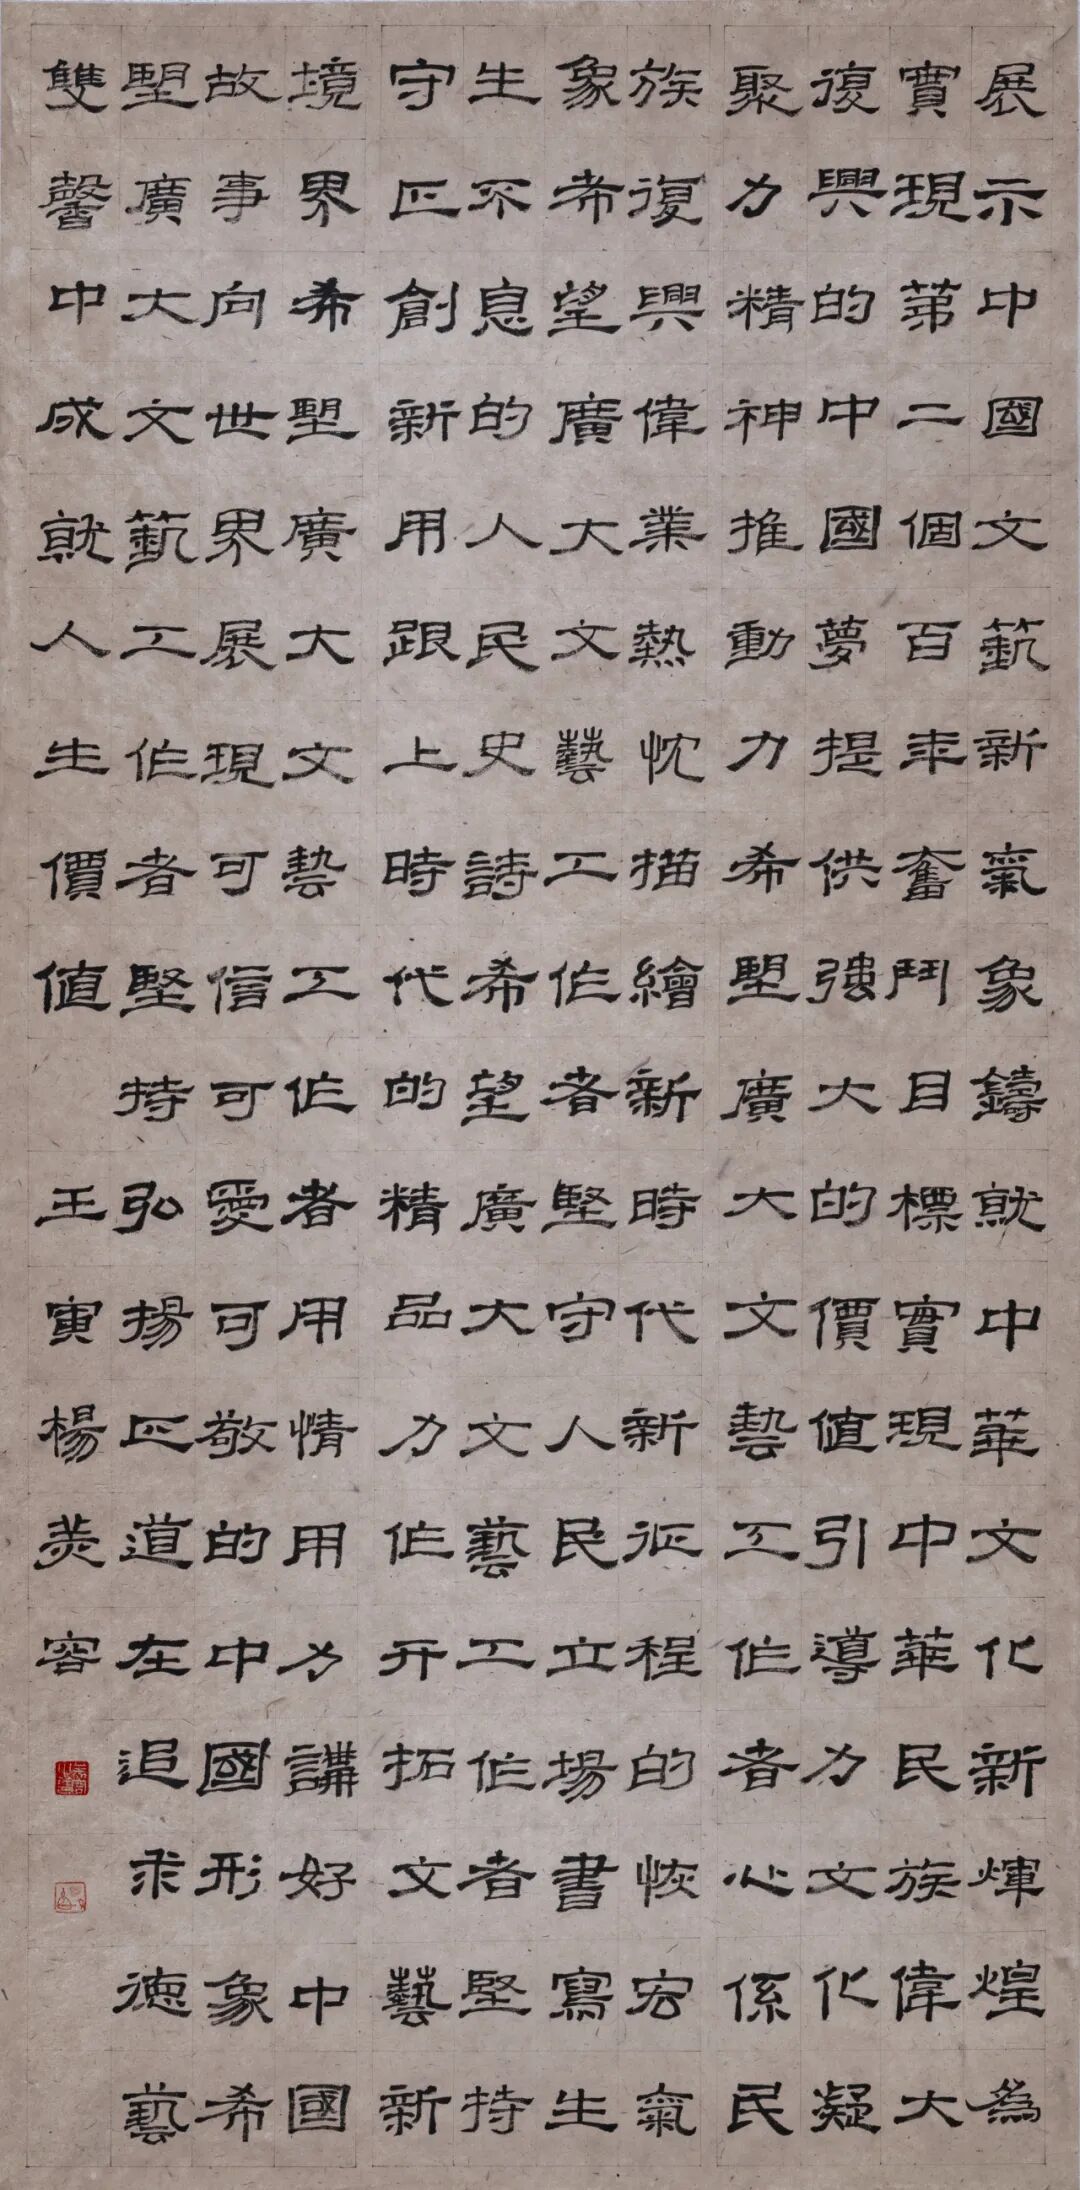 展示中國文藝新氣象鑄就中華文化新輝煌為
實現第二個百年奮鬥目標實現中華民族偉大
復興的中國夢提供強大的價值引導力文化凝
聚力精神推動力希望廣大文藝工作者心係民
族復興偉業熱忱描繪新時代新征程的恢宏氣
象希望廣大文藝工作者堅守人民立場書寫生
生不息的人民史詩希望廣大文藝工作者堅持
守正創新用跟上時代的精品力作开拓文藝新
境界希望廣大文藝工作者用情用力講好中國
故事向世界展現可信可愛可敬的中國形象希
望廣大文藝工作者堅持弘揚正道在追求德藝
雙馨中成就人生價值 壬寅楊羙容